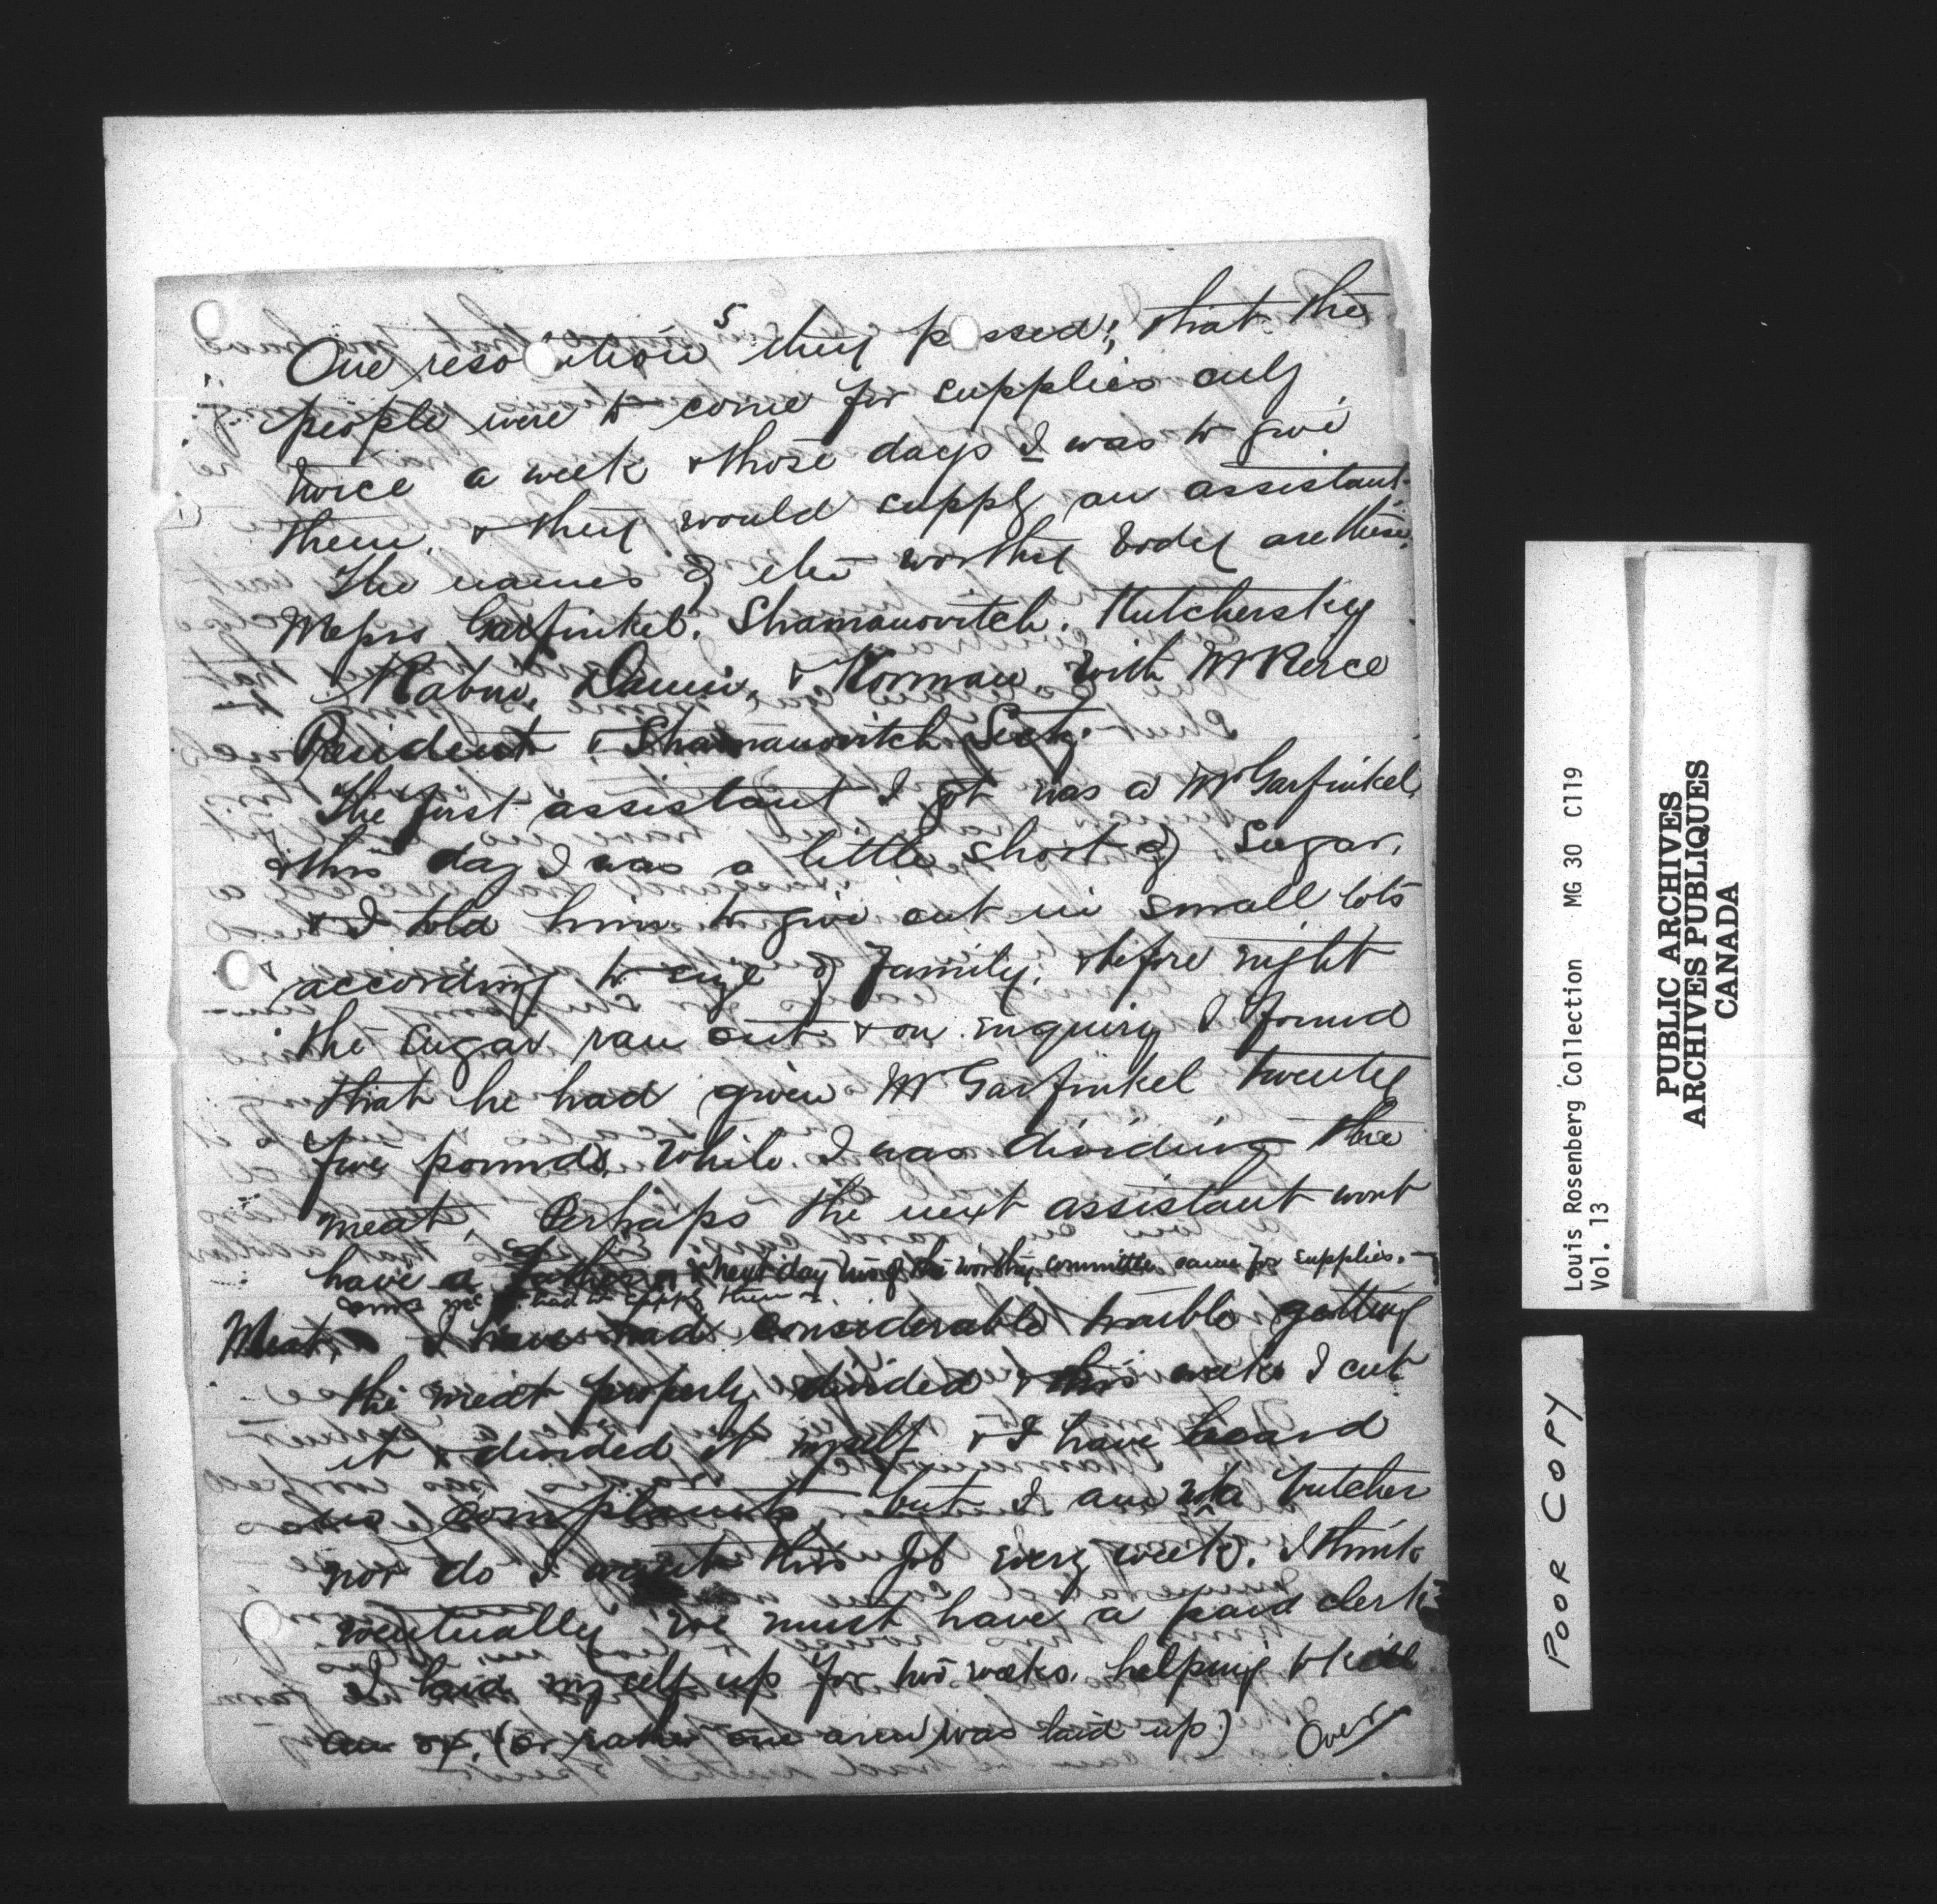 5
One resolution they passed; that the
people were to come for supplies only
twice a week & those days I was to give
them, & they would supply an assistant.
The names of the worthy body are these.
Messrs Garfinkel. Shamanovitch. Kutchersky
Korman, with Mr Pierce
President & Shamanovitch Secty.
The first assistant I got was a Mr Garfinkel,
& this day I was a little short of Sugar,
& I told him to give out in small lots
& according to size of Family; & before night
the sugar ran out & on enquiry I found
that he had given Mr Garfinkel twenty
five pounds, while I was dividing the
meat, Perhaps the next assistant wont
have a father & next day two of the worthy committee came for supplies.
had to supply them
Meat, I have had considerable trouble getting
the meat properly divided & this week I cut
it & divided it myself & I have heard
no complaints, but I am not a butcher
nor do I want this job every week. I think
eventually we must have a paid clerk
I laid myself up for two weeks, helping to kill
an ox, (or rather one arm was laid up)
Over
Louis Rosenberg Collection MG 30 C119
Vol. 13
PUBLIC ARCHIVES
ARCHIVES PUBLIQUES
CANADA
POOR COPY